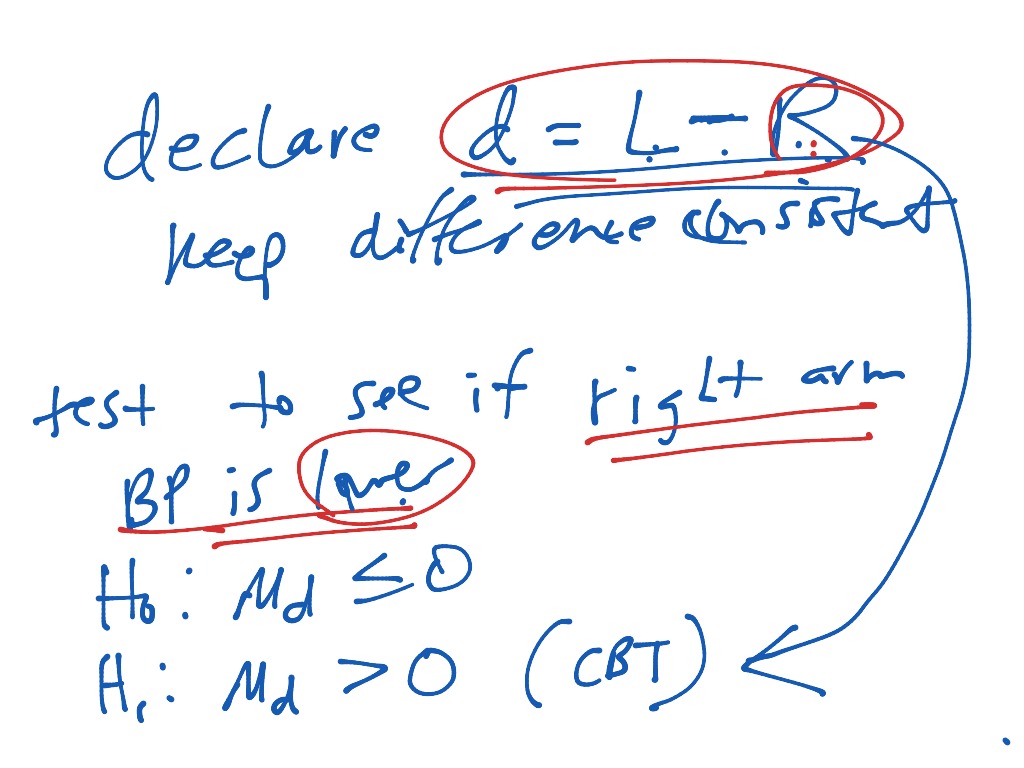 declare d = L - R
keep difference consistent
test to see if right arm
BP is lower
H₀: μd ≤ 0
H₁: μd > 0 (CBT)